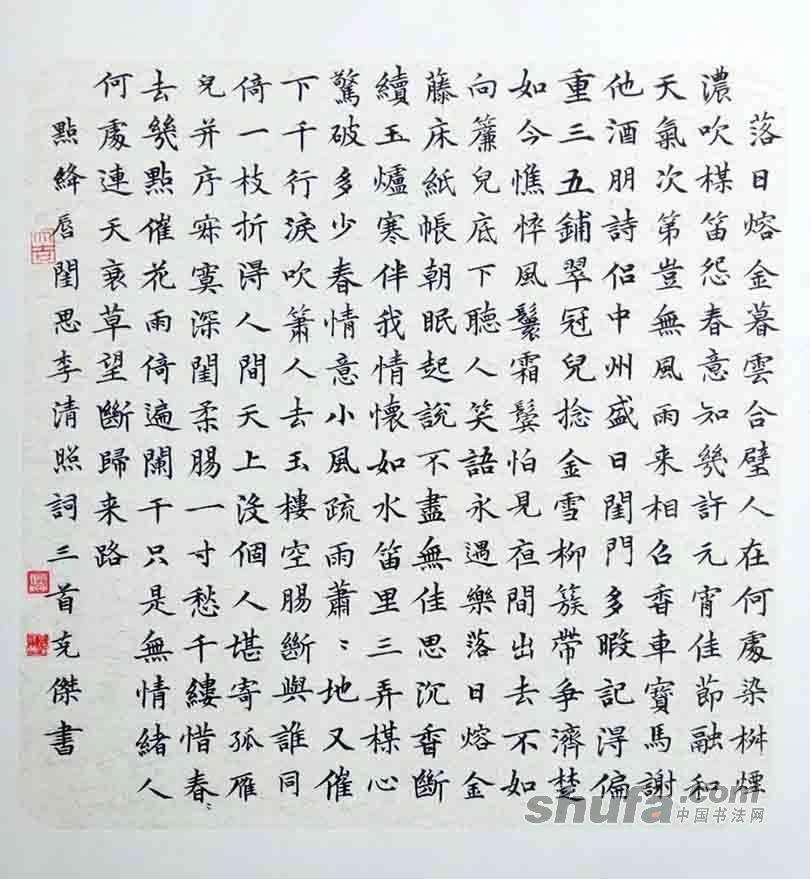 落日熔金暮雲合璧人在何處染桺煙
濃吹楳笛怨春意知幾許元宵佳節融和
天氣次第豈無風雨来相召香車寶馬謝
他酒朋詩侣中州盛日閨門多暇記得偏
重三五鋪翠冠兒捻金雪柳簇帶争濟楚
如今憔悴風鬟霜鬢怕見夜間出去不如
向簾兒底下聽人笑語永遇樂落日熔金
藤床紙帳朝眠起説不盡無佳思沉香斷
續玉爐寒伴我情懷如水笛里三弄楳心
驚破多少春情意小風疏雨蕭〻地又催
下千行淚吹簫人去玉樓空腸斷與誰同
倚一枝折得人間天上没個人堪寄孤雁
兒并序寂寞深閨柔腸一寸愁千縷惜春〻
去幾點催花雨倚遍闌干只是無情緒人
何處連天衰草望斷歸来路
點絳唇閨思李清照詞三首克傑書
shufa.com
中国书法网